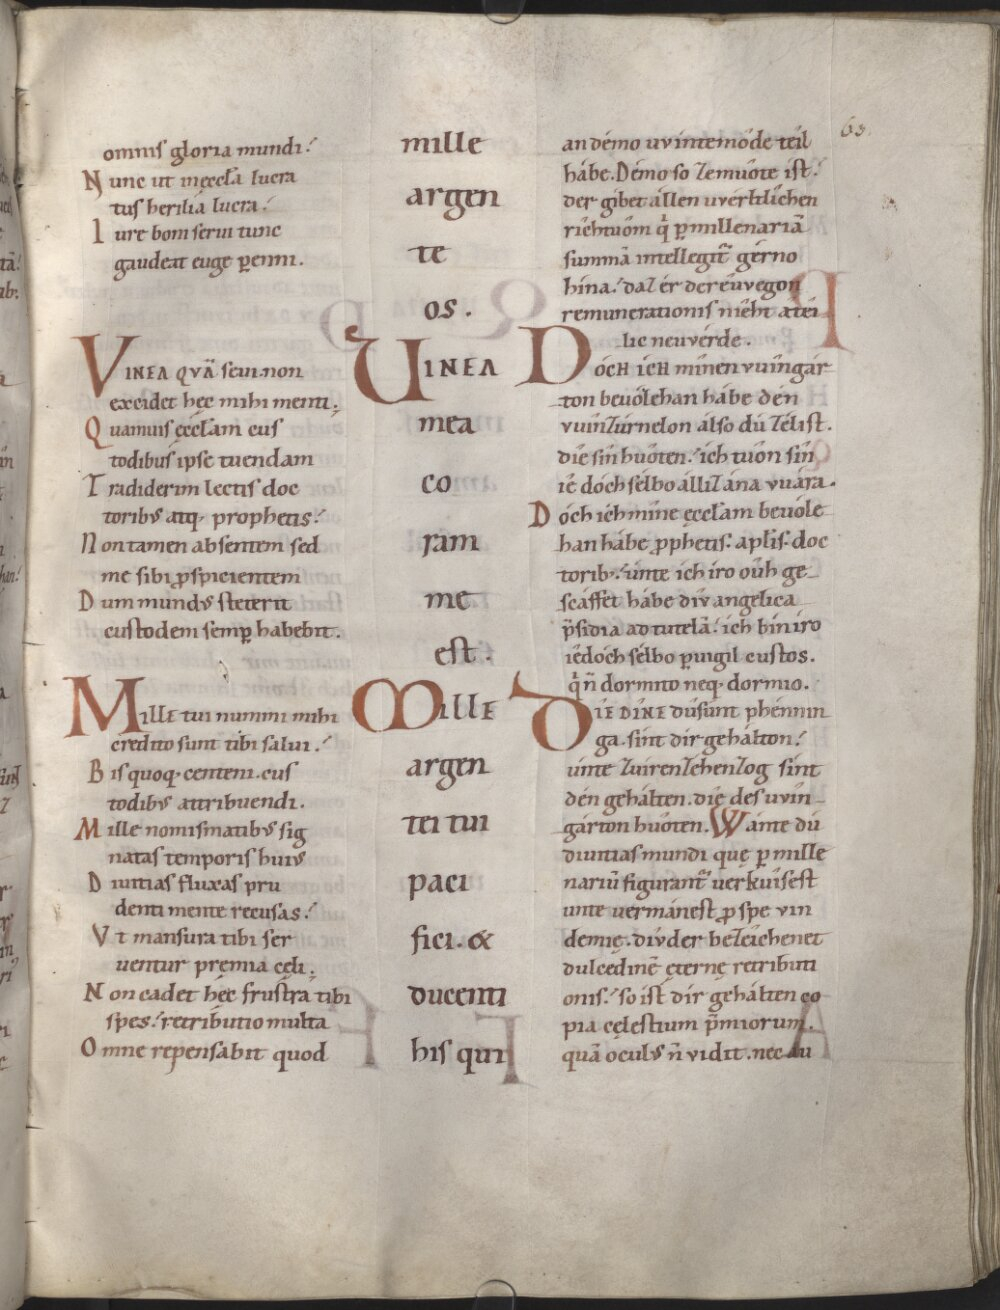 63
omnis gloria mundi.
Nunc ut inęccl̃a lucra
tus herilia lucra.
Iure boni serui tunc
gaudeat euge ꝑenni.
VINEA QVÃ seui non
excidet hęc mihi menti.
Quamuis ęccl̃am cus
todibus ipse tuendam
Tradiderim lectis doc
toribꝰ atq; prophetis.
Non tamen absentem sed
me sibi ꝓspicientem
Dum mundꝰ steterit
custodem semꝑ habebit.
MILLE tui nummi mihi
credito sunt tibi salui.
Bis quoq; centeni cus
todibꝰ attribuendi.
Mille nomismatibꝰ sig
natas temporis huiꝰ
Diuitias fluxas pru
denti mente recusas.
Vt mansura tibi ser
uentur pręmia cęli.
Non cadet hęc frustra tibi
spes. retributio multa
Omne repensabit quod
mille
argen
te
os.
UINEA
mea
co
ram
me
est.
MILLE
argen
tei tui
paci
fici. &
ducenti
his qui
an démo uvintemóde téil
hábe. Démo so zemuôte ist.
der gíbet állen uuérltlîchen
ríchtuôm q̇ ꝑ millenariã
summã intellegit᷑ gérno
hína. daz ér der éuuegon
remunerationis nîeht atéi
lic neuuérde.
DÓCH ICH mînen vuîngár
ton beuólehan hábe dén
vuînzúrnelon álso dú zélist.
díe sîn huôten. ích tuôn sîn
îe dóch sélbo állizána vuára.
Dóch ich mîne ęccl̃am beuóle
han hábe ꝓphetis. apl̃is. doc
torib;. únte ích íro oûh ge
scáffet hábe dív angelica
p̃sidia ad tutelã. ích bín íro
îedóch sélbo ꝑuigil custos.
q̇ ñ dormito neq; dormio.
DIE DINE dûsunt phénnin
ga. sínt dír gehálton.
únte zuîrenzéhenzog sínt
dén gehálten. díe des uvín
gárton huôten. Wánte dú
diuitias mundi quę ꝑ mille
nariũ figurant᷑ uerkuîsest
unte uermánest ꝓ spe vin
demię. dív der bezeíchenet
dulcedinẽ ęternę retributi
onis. so íst dír gehálten co
pia cęlestium p̃miorum.
quã oculꝰ ñ vidit. nec au